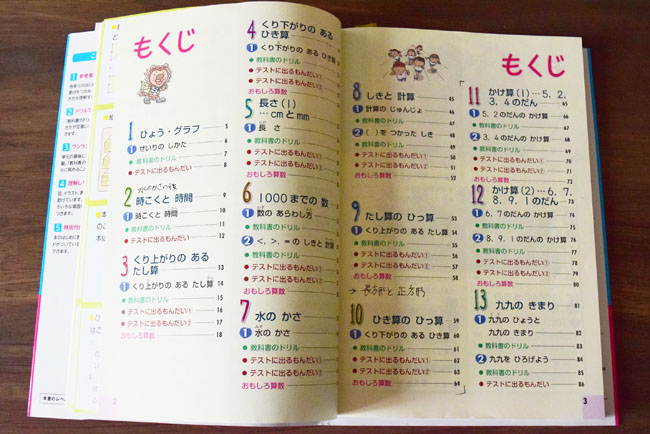 もくじ
1 ひょう・グラフ 5
1 せいりの しかた 6
● 教科書のドリル 7
● テストに出るもんだい 8
水のかさの後
2 時こくと 時間 9
1 時こくと 時間 10
● 教科書のドリル 11
● テストに出るもんだい 12
3 くり上がりの ある
たし算 13
1 くり上がりの ある たし算 14
● 教科書のドリル 15
● テストに出るもんだい① 16
● テストに出るもんだい② 17
おもしろ算数 18
2
4 くり下がりの ある
ひき算
1 くり下がりの ある ひき算
● 教科書のドリル
● テストに出るもんだい①
● テストに出るもんだい②
おもしろ算数
5 長さ(1)
…cmとmm
1 長 さ
● 教科書のドリル
● テストに出るもんだい
6 1000までの 数
1 数の あらわし方
● 教科書のドリル
2 <、>、=の しきと 計算
● 教科書のドリル
● テストに出るもんだい
おもしろ算数
7 水の かさ
1 水の かさ
● 教科書のドリル
● テストに出るもんだい①
● テストに出るもんだい
おもしろ算数
もくじ
8 しきと 計算 45
1 計算の じゅんじょ 46
● 教科書のドリル 47
2 ( )を つかった しき 48
● 教科書のドリル 49
● テストに出るもんだい① 50
● テストに出るもんだい② 51
おもしろ算数 52
9 たし算の ひっ算 53
1 くり上がりの ある たし算 54
● 教科書のドリル 56
● テストに出るもんだい① 57
● テストに出るもんだい② 58
→ 長方形と 正方形
10 ひき算の ひっ算 59
1 くり下がりの ある ひき算 60
● 教科書のドリル 61
● テストに出るもんだい① 62
● テストに出るもんだい② 63
おもしろ算数 64
11 かけ算(1)…5. 2.
3. 4のだん 65
1 5. 2のだんの かけ算 66
● 教科書のドリル 67
2 3. 4のだんの かけ算 68
● 教科書のドリル 69
● テストに出るもんだい① 70
● テストに出るもんだい② 71
おもしろ算数 72
12 かけ算(2)…6. 7.
8. 9. 1のだん 73
1 6. 7のだんの かけ算 74
● 教科書のドリル 75
2 8. 9. 1のだんの かけ算 76
● 教科書のドリル 77
● テストに出るもんだい① 78
● テストに出るもんだい② 79
おもしろ算数 80
13 九九の きまり 81
1 九九の ひょうと
九九の きまり 82
● 教科書のドリル 83
2 九九を ひろげよう 84
● 教科書のドリル 85
● テストに出るもんだい 86
3